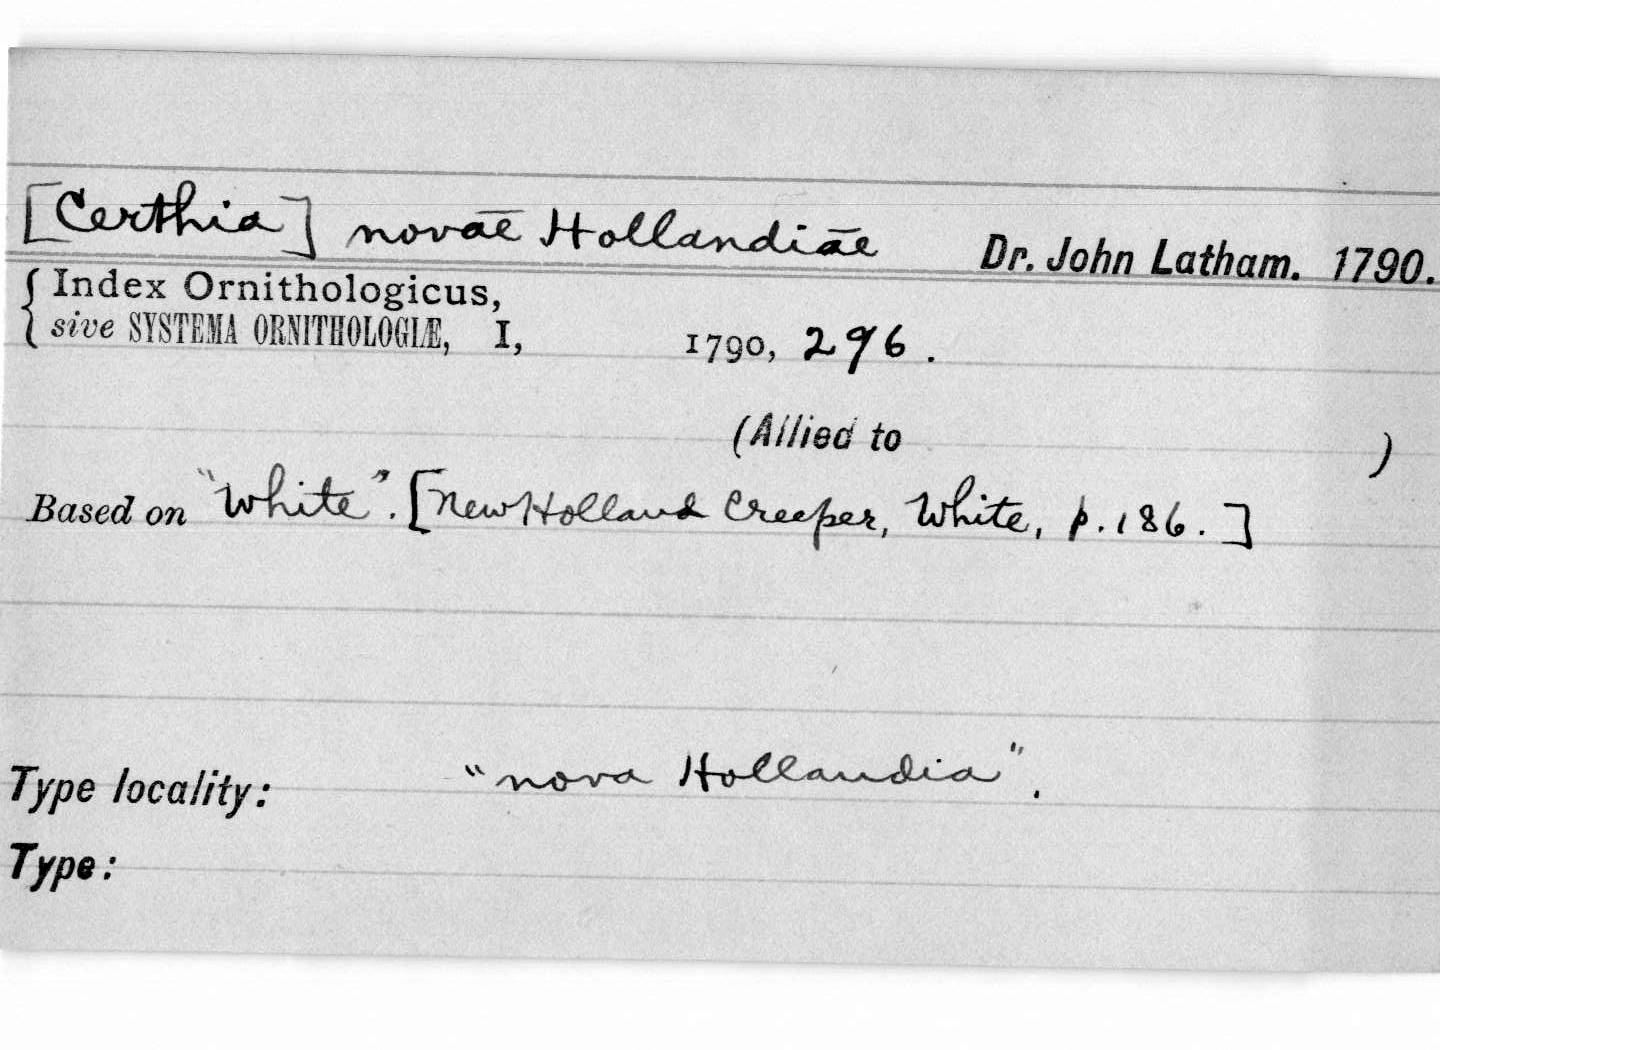 [Certhia] novae Hollandiae Dr. John Latham. 1790.
Index Ornithologicus,
sive SYSTEMA ORNITHOLOGIÆ, I, 1790, 296.
(Allied to )
Based on "White". [New Holland Creeper, White, p. 186.]
Type locality: "nova Hollandia".
Type: